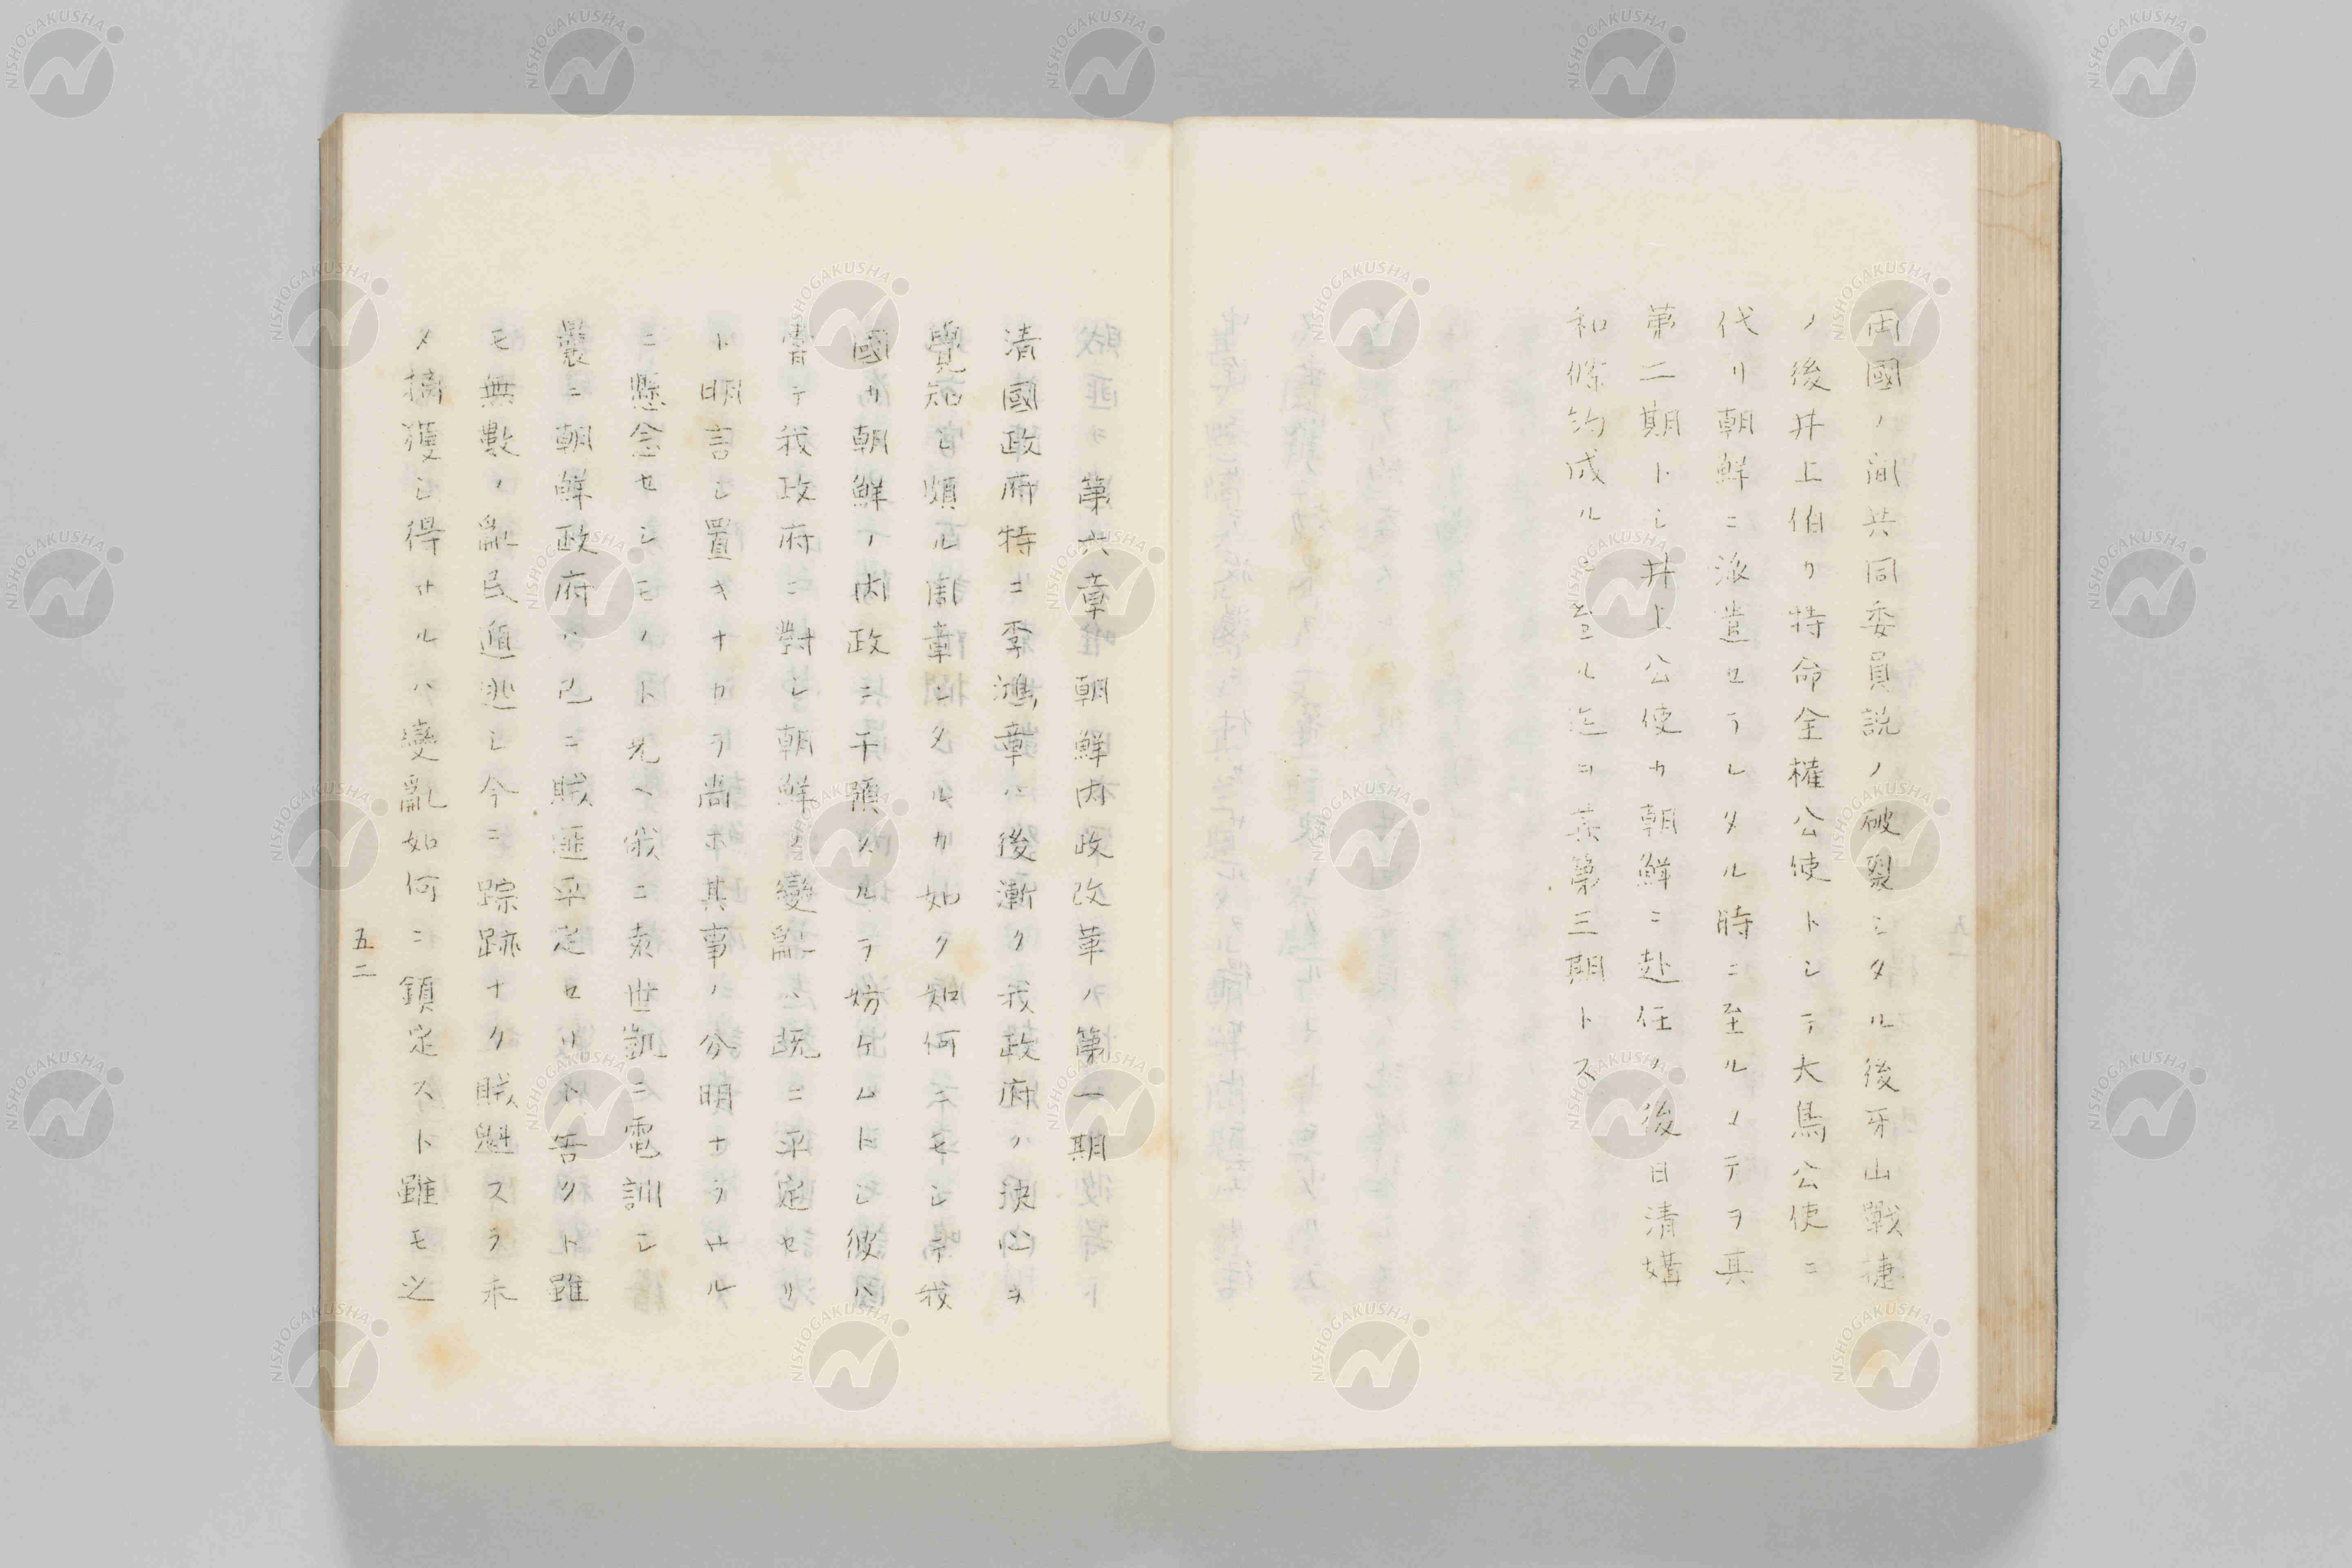 両國ノ間共同委員説ノ破裂シタル後牙山戰捷
ノ後井上伯カ特命全權公使トシテ大鳥公使ニ
代リ朝鮮ニ派遣セラレタル時ニ至ルノテヲ其
第二期トシ井上公使カ朝鮮ニ赴任ノ後日清媾
和條約成ルニ至ル迄ヲ其第三期トス
第六章 朝鮮内政改革ノ第一期
清國政府特ニ李鴻章ハ後漸ク我政府ノ決心ヲ
覺知シ頗ル周章シタルカ如ク如何ニモシテ我
國カ朝鮮ノ内政ニ干預スルヲ妨ケムトシ彼ハ
書テ我政府ニ對シ朝鮮ノ變亂ハ既ニ平定セリ
ト明言シ置キナカラ尚ホ其事ノ分明ナラサル
ニ懸念セシモノト見ヘ俄ニ袁世凱ニ電訓シ
曩ニ朝鮮政府ハ已ニ賊匪平定セリト告クト雖
モ無數ノ亂民遁逃シ今ニ踪跡ナク賊魁スラ未
タ擒獲シ得サルハ變亂如何ニ鎮定スト雖モ之
五二
NISHOGAKUSHA